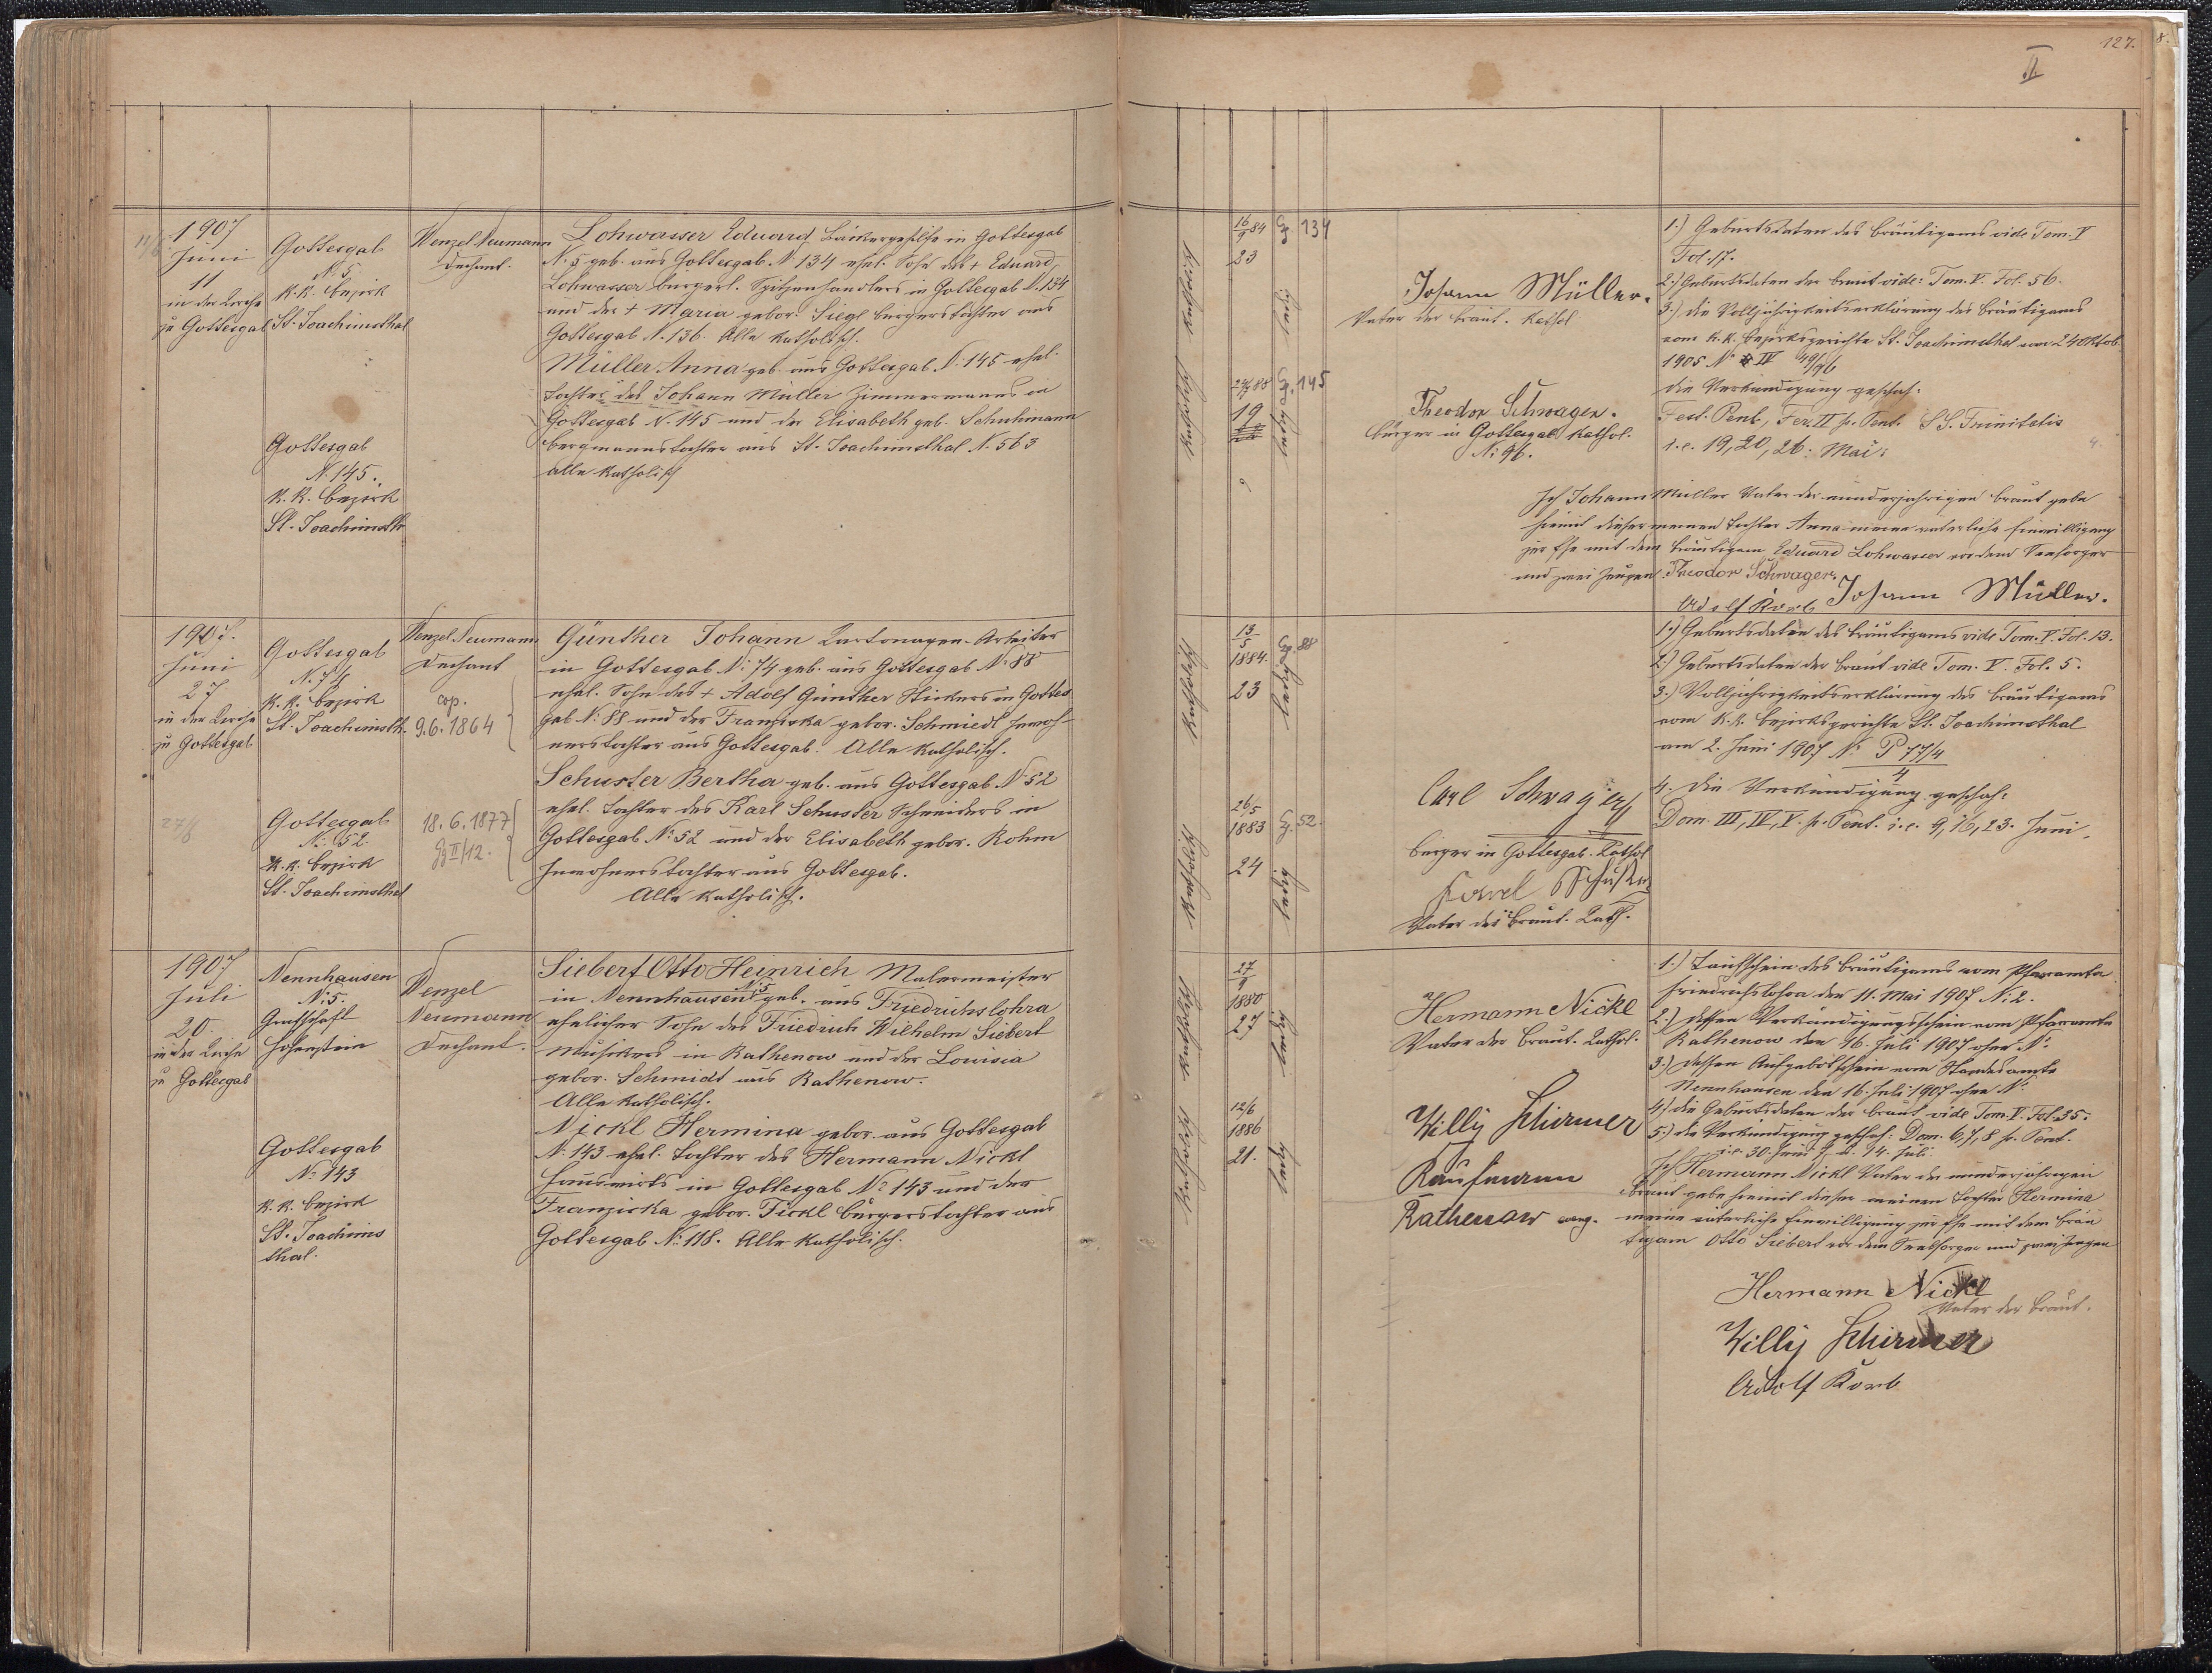 127.
II
1907
Juni
11
in der Kirche
zu Gottesgab
Gottesgab
N. 5.
K. K. Bezirk
St. Joachimsthal
Wenzel Neumann
Dechant.
Lohwasser Eduard Bäckergehilfe in Gottesgab
N. 5 geb. aus Gottesgab N. 134 ehel. Sohn des + Eduard
Lohwasser bürgerl. Spitzenhandlers in Gottesgab N. 134
und der + Maria gebor. Siegl Bürgerstochter aus
Gottesgab N. 136. Alle katholisch.
Müller Anna geb. aus Gottesgab N. 145 ehel.
Tochter des Johann Müller Zimmermanns in
Gottesgab N. 145 und der Elisabeth geb. Schuhmann
Bergmannstochter aus St. Joachimsthal N. 563
alle katholisch
Gottesgab
N. 145.
K. K. Bezirk
St. Joachimsth
katholisch katholisch
16/9 84
23
134
ledig
88
145
19
ledig
Johann Müller.
Vater der Braut. Kathol
Theodor Schwager.
Bürger in Gottesgab Kathol.
N: 96.
1.) Geburtsdaten des Bräutigams vide Tom. V
Fol. 17.
2.) Geburtsdaten der Braut vide: Tom. V. Fol. 56.
3.) Die Volljährigkeitserklärung des Bräutigams
vom k. k. Bezirksgerichte St. Joachimsthal vom 24 Oktob.
1905 N IV 49/96
Die Verkündigung geschah:
Fest. Pent., Fer. II p. Pent. SS. Trinitatis
i. e. 19, 20, 26: Mai:
Ich Johann Müller Vater der minderjährigen Braut gebe
hiemit dieser meinen Tochter Anna meine väterliche Einwilligung
zur Ehe mit dem Bräutigam Eduard Lohwasser vor dem Seelsorger
und zwei Zeugen. Theodor Schwager.
Adolf Korb Johann Müller.
1907.
Juni
27.
in der Kirche
zu Gottesgab.
27/6
Gottesgab
N. 74
K. K. Bezirk
St. Joachimsth.
Wenzel Neumann
Dechant
cop.
9.6.1864
Günther Johann Kartonagen-Arbeiter
in Gottesgab N: 74 geb. aus Gottesgab N: 88
ehel. Sohn des + Adolf Günther Stickers in Gottes
gab N: 88 und der Franziska gebor. Schmiedl Inwoh-
nerstochter aus Gottesgab. Alle katholisch.
Schuster Bertha geb. aus Gottesgab N 52
ehel. Tochter des Karl Schuster Schneiders in
Gottesgab N: 52 und der Elisabeth gebor. Rohm
Inwohnerstochter aus Gottesgab.
Alle katholisch.
Gottesgab
N: 52.
K. K. Bezirk
St. Joachimsthal
18.6.1877
II/12.
katholisch katholisch
13/5
1884.
23
88
ledig
26/5
1883
24
52.
ledig
Carl Schwager
Bürger in Gottesgab. Kathol
Karl Schuster
Vater der Braut. Kath.
1.) Geburtsdaten des Bräutigams vide Tom. V. Fol. 13.
2.) Geburtsdaten der Braut vide Tom. V. Fol. 5.
3.) Volljährigkeitserklärung des Bräutigams
vom K. K. Bezirksgerichte St. Joachimsthal
am 2. Juni 1907 N: P 77/4
4
4. Die Verkündigung geschah:
Dom. III, IV, V. p. Pent. i. e. 9, 16, 23. Juni.
1907
Juli
20.
in der Kirche
zu Gottesgab
Nennhausen
N: 5.
Grafschaft
Hohenstein
Wenzel
Neumann
Dechant.
Siebert Otto Heinrich Malermeister
in Nennhausen N: 5 geb. aus Friedrichslohra
ehelicher Sohn des Friedrich Wilhelm Siebert
Musikers in Rathenow und der Louisa
gebor. Schmidt aus Rathenow.
Alle katholisch.
Nickl Hermina gebor. aus Gottesgab
N. 143 ehel. Tochter des Hermann Nickl
Hauswirts in Gottesgab N: 143 und der
Franziska gebor. Fickl Bürgerstochter aus
Gottesgab N: 118. Alle katholisch.
Gottesgab
N: 143
K. K. Bezirk
St. Joachims
thal.
katholisch katholisch
27/9
1880
27
ledig
12/6
1886
21.
ledig
Hermann Nickl
Vater der Braut. Kathol.
Willy Schirmer
Kaufmann
Rathenow evang.
1.) Taufschein des Bräutigams vom Pfarramte
Friedrichslohra den 11. Mai 1907 N: 2.
2.) Dessen Verkündigungsschein vom Pfarramte
Rathenow den 16. Juli 1907 ohne N:
3.) Dessen Aufgebotschein vom Standesamte
Nennhausen den 16. Juli 1907 ohne N:
4.) Die Geburtsdaten der Braut vide Tom. V. Fol. 35:
5.) Die Verkündigung geschah: Dom. 6, 7, 8 p. Pent.
i. e. 30. Juni 7. u. 14. Juli.
Ich Hermann Nickl Vater der minderjährigen
Braut gebe hiemit dieser meinen Tochter Hermina
meine väterliche Einwilligung zur Ehe mit dem Bräu
tigam Otto Siebert vor dem Seelsorger und zwei Zeugen
Hermann Nickl
Vater der Braut.
Willy Schirmer
Adolf Korb